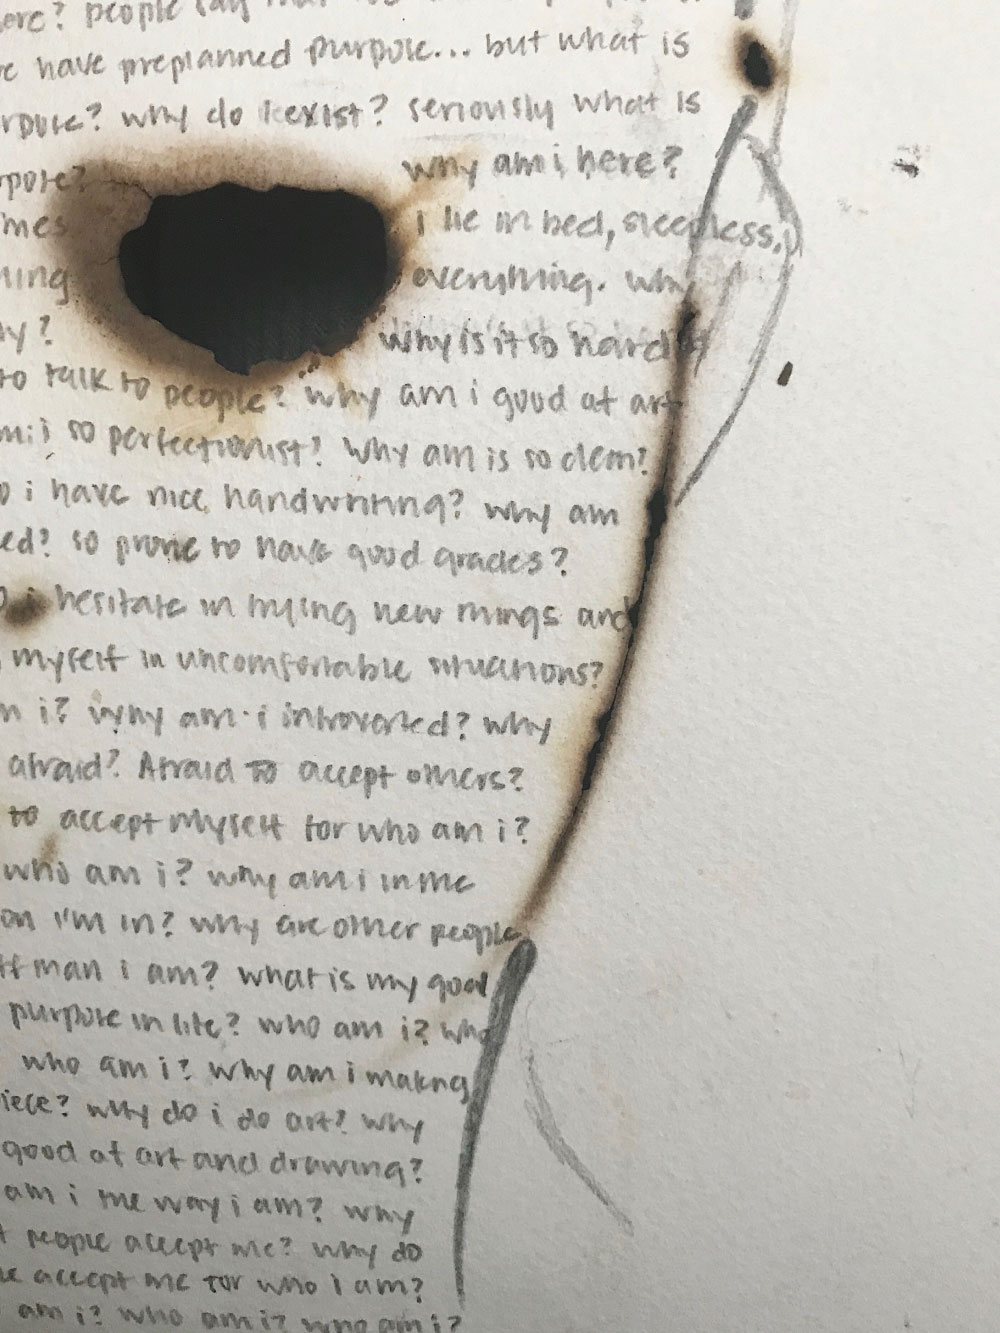 here? people say that
have preplanned purpose... but what is
purpose? why do i exist? seriously what is
why am i here?
i lie in bed, sleepless,
everything. why
why is it so hard
to talk to people? why am i good at art
so perfectionist? why am is so clean?
i have nice handwriting? why am
so prone to have good grades?
i hesitate in trying new things and
myself in uncomfortable situations?
i? why am i introverted? why
afraid? Afraid to accept others?
to accept myself for who am i?
who am i? why am i in the
I'm in? why are other people
man i am? what is my goal
purpose in life? who am i? who
who am i? why am i makng
piece? why do i do art? why
good at art and drawing?
am i the way i am? why
people accept me? why do
accept me for who i am?
am i? who am i? who am i?